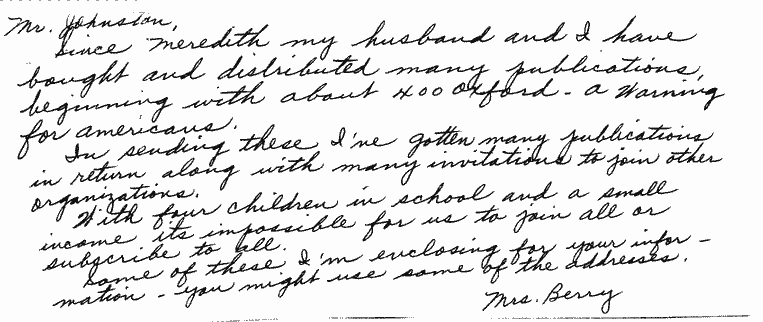 Mr. Johnston,
Since Meredith my husband and I have
bought and distributed many publications,
beginning with about 400 Oxford - a Warning
for americans.
In sending these I've gotten many publications
in return along with many invitations to join other
organizations.
With four children in school and a small
income its impossible for us to join all or
subscribe to all.
Some of these I'm enclosing for your infor-
mation - you might use some of the addresses.
Mrs. Berry